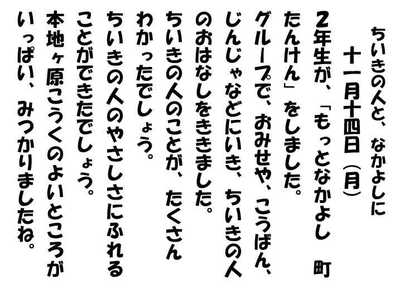 ちいきの人と、なかよしに
十一月十四日（月）
２年生が、「もっとなかよし　町
たんけん」をしました。
グループで、おみせや、こうばん、
じんじゃなどにいき、ちいきの人
のおはなしをききました。
ちいきの人のことが、たくさん
わかったでしょう。
ちいきの人のやさしさにふれる
ことができたでしょう。
本地ヶ原こうくのよいところが
いっぱい、みつかりましたね。